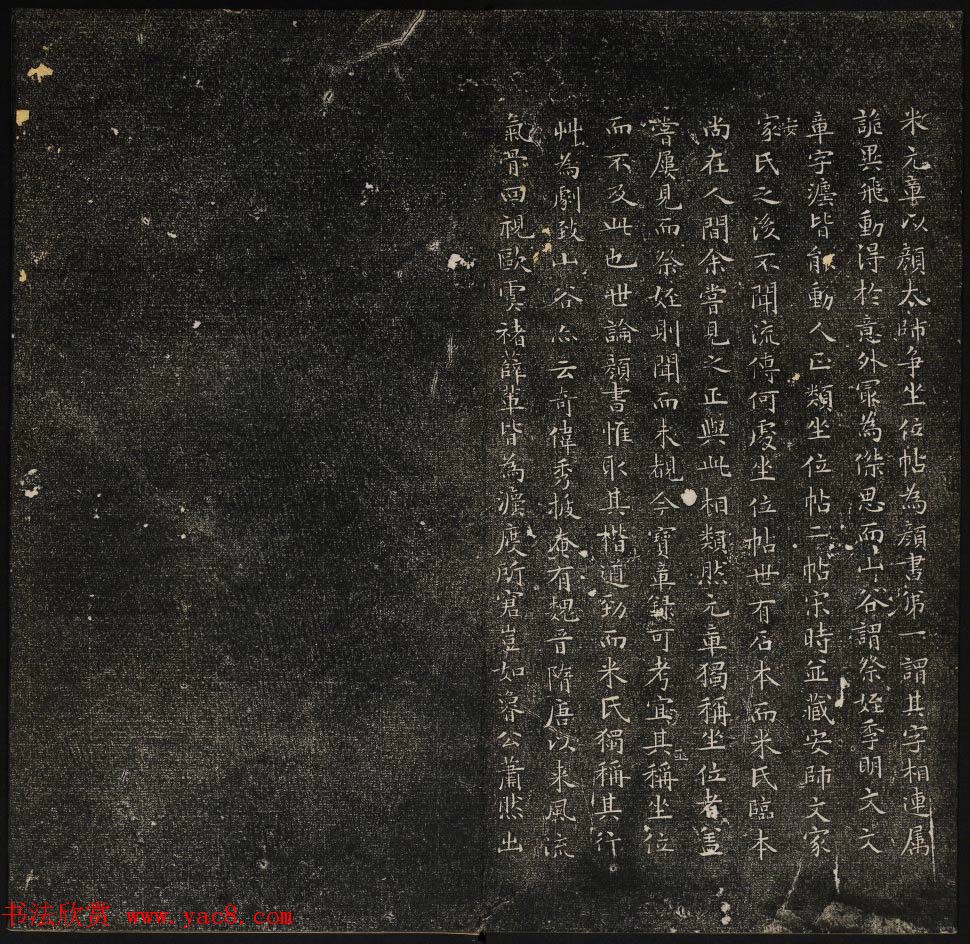 米元章以顏太師争坐位帖為顏書第一謂其字相連属
詭異飛動得於意外冣為傑思而山谷謂祭姪季明文文
章字灋皆能動人正類坐位帖二帖宋時並藏安師文家
安
家氏之後不聞流傳何處坐位帖世有石本而米氏臨本
尚在人間余嘗見之正與此相類然元章獨稱坐位者盖
嘗屢見而祭姪則聞而未覩今寶章録可考宜其稱坐位
並
而不及此也世論顏書惟取其楷遒勁而米氏獨稱其行
艸為劇致山谷亦云奇偉秀拔奄有魏晉隋唐以来風流
氣骨回視歐虞褚薛軰皆為灋度所窘豈如魯公蕭然出
书法欣赏 www.yac8.com